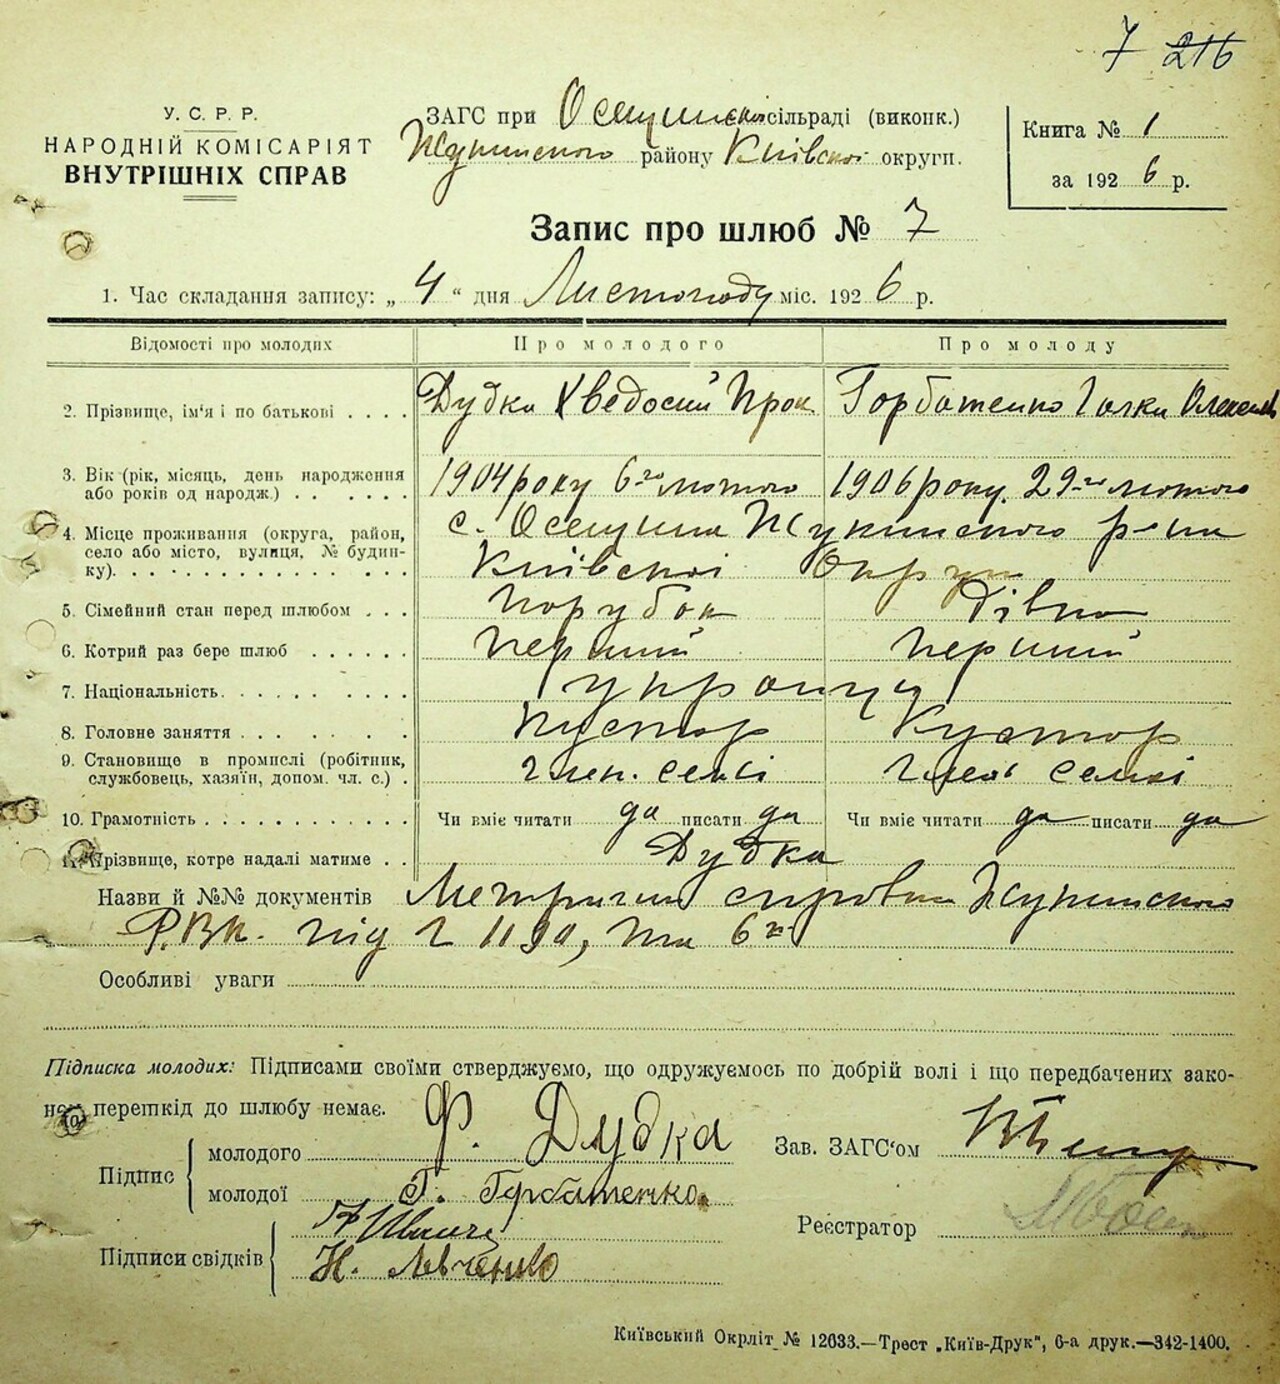 7 216
У. С. Р. Р.
НАРОДНІЙ КОМІСАРІЯТ
ВНУТРІШНІХ СПРАВ
ЗАГС при Осещинській сільраді (виконк.)
Жукинского району Київської округи.
Книга № 1
за 1926 р.
Запис про шлюб № 7
1. Час складання запису: „ 4 “ дня Листопаду міс. 1926 р.
Відомості про молодих
Про молодого
Про молоду
2. Прізвище, ім'я і по батькові . . . .
Дудка Хведосий Прок
Горбатенко Галка Олексіев
3. Вік (рік, місяць, день народження
або років од народж.) . . . . . .
1904 року 6го лютого
1906 року 29-го лютого
4. Місце проживання (округа, район,
село або місто, вулиця, № будин-
ку). . . . . . . . . . . . . . .
с. Осещина Жукинского р-на
Київської Округи
5. Сімейний стан перед шлюбом . . .
Парубок
Дівка
6. Котрий раз бере шлюб . . . . . .
Перший
Перший
7. Національність. . . . . . . . . .
українці
8. Головне заняття . . . . . . .
Кустар
Кустар
9. Становище в промислі (робітник,
службовець, хазяїн, допом. чл. с.) .
член. семї
член семї
10. Грамотність . . . . . . . . . . .
Чи вміє читати да писати да
Чи вміє читати да писати да
11. Прізвище, котре надалі матиме . .
Дудка
Назви й №№ документів Метричні справки Жукинского
Р.В.К. під
Особливі уваги
Підписка молодих: Підписами своїми стверджуємо, що одружуємось по добрій волі і що передбачених зако-
ном перешкід до шлюбу немає.
Підпис
молодого Ф. Дудка
молодої Г. Горбатенко
Зав. ЗАГС'ом
Реєстратор
Підписи свідків
Н. Левченко
Київський Окрліт № 12633.—Трест „Київ-Друк", 6-а друк.—342-1400.